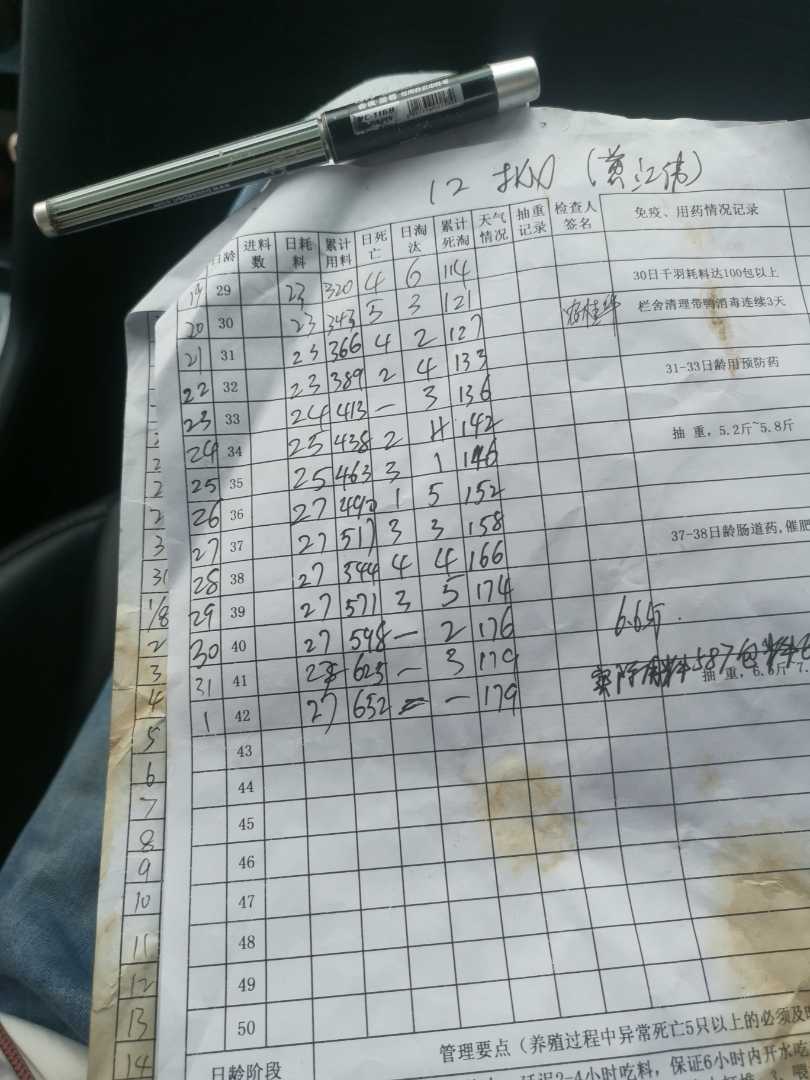 12
日龄 进料数 日耗料 累计用料 日死亡 日淘汰 累计死淘 天气情况 抽重记录 检查人签名 免疫、用药情况记录
19 29 23 320 4 6 114 30日千羽耗料达100包以上
20 30 23 343 5 3 121 栏舍清理带鸭消毒连续3天
21 31 23 366 4 2 127
22 32 23 389 2 4 133 31-33日龄用预防药
23 33 24 413 — 3 136
24 34 25 438 2 4 142 抽 重，5.2斤~5.8斤
25 35 25 463 3 1 146
26 36 27 490 1 5 152
27 37 27 517 3 3 158 37-38日龄肠道药,催肥
28 38 27 544 4 4 166
29 39 27 571 3 5 174
30 40 27 598 — 2 176 6.6斤.
31 41 625 — 3 179 实际用料587包 抽 重，6.6斤 7.
1 42 27 652 — 179
43
44
45
46
47
48
49
50
日龄阶段 管理要点（养殖过程中异常死亡5只以上的必须及时
2-4小时吃料，保证6小时内开水吃
2
2
2
3
31
1/8
2
3
4
5
6
7
8
9
10
11
12
13
14